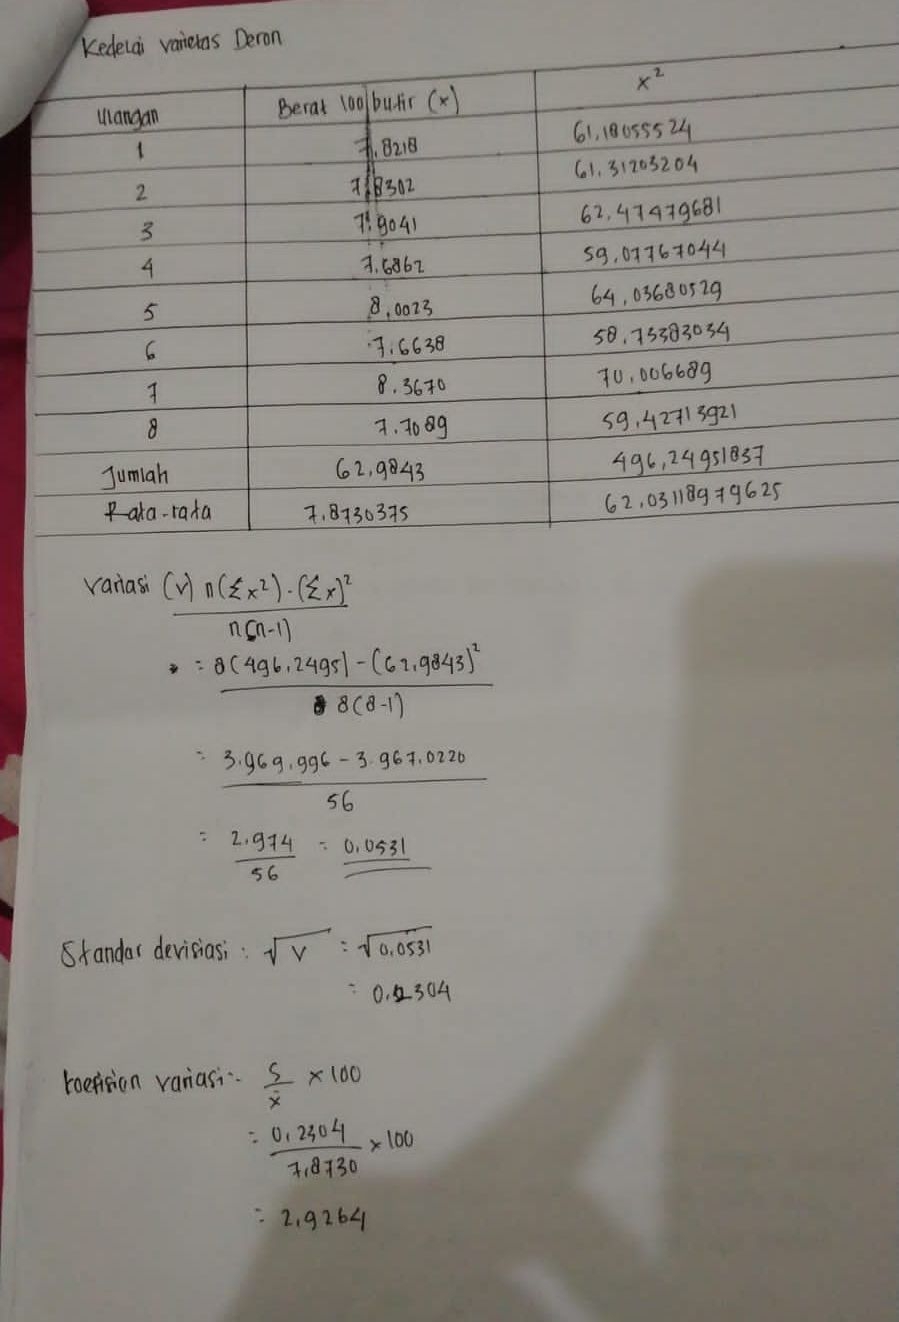 Kedelai varietas Deron
Ulangan Berat 100 butir (x) x²
1 7,8218 61,18055524
2 7,8302 61,31203204
3 7,9041 62,47479681
4 7,6862 59,07767044
5 8,0023 64,03680529
6 7,6638 58,73383034
7 8,3670 70,006689
8 7,7089 59,42713921
Jumlah 62,9843 496,24951837
Rata-rata 7,8730375 62,03118979625
variasi (v) n(Σx²) - (Σx)²
n(n-1)
= 8(496,2495) - (62,9843)²
8(8-1)
= 3.969,996 - 3.967,0220
56
= 2,974 = 0,0531
56
Standar devisiasi : √v = √0,0531
= 0,2304
koefision variasi : S/x̄ × 100
= 0,2304 × 100
7,8730
= 2,9264